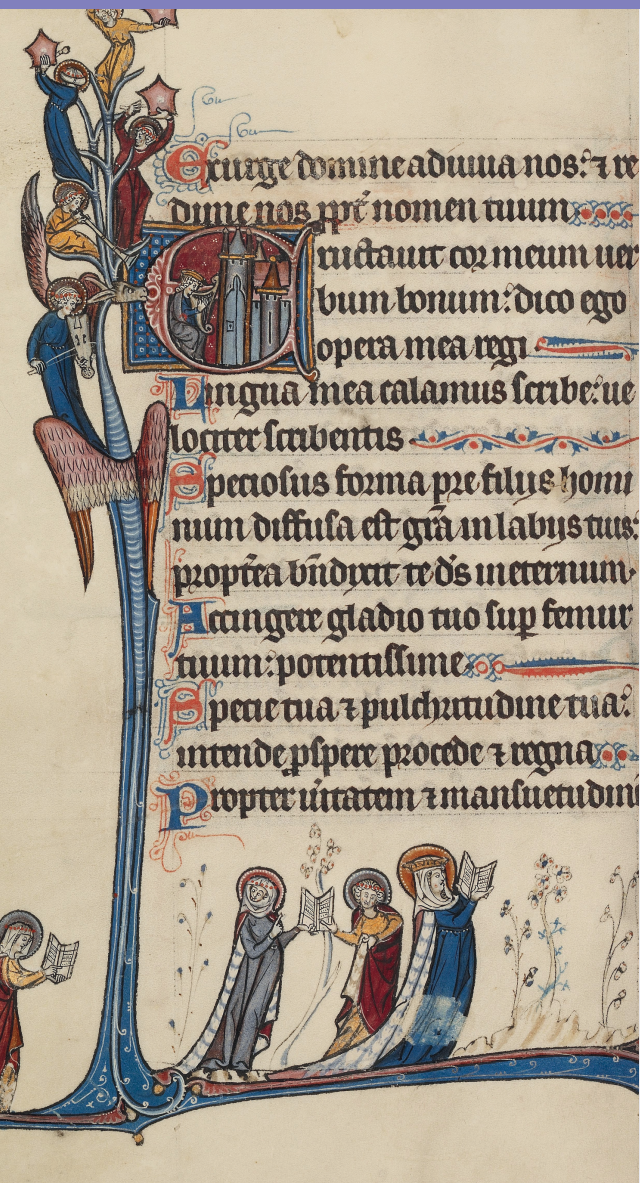 Exurge domine adiuua nos: ⁊ re
dime nos ꝓpt̄ nomen tuum
Eructauit cor meum uer
bum bonum: dico ego
opera mea regi
Lingua mea calamus scribe: ue
lociter scribentis
Speciosus forma pre filijs homi
num diffusa est gr̄a in labijs tuis:
propt̄ea bn̄dixit te d̄s in eternum
Accingere gladio tuo sup̱ femur
tuum: potentissime
Specie tua ⁊ pulchritudine tua:
intende ꝓspere procede ⁊ regna
Propter uītatem ⁊ mansuetudini